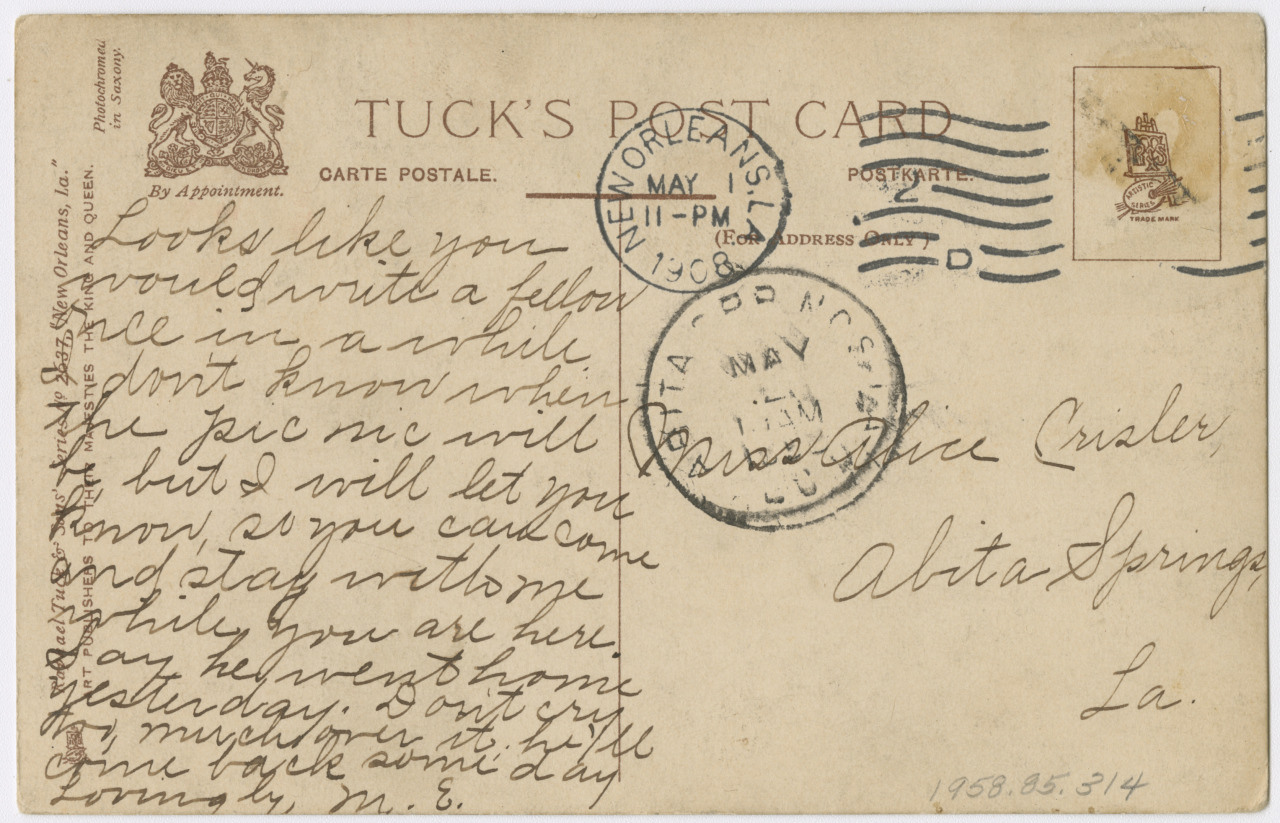 Photochromed
in Saxony.
By Appointment.
TUCK'S POST CARD
CARTE POSTALE.
POSTKARTE.
(FOR ADDRESS ONLY)
TRADE MARK
ARTISTIC
SERIES
NEW ORLEANS, LA.
MAY 1
11-PM
1908
2
D
ABITA SPRINGS, LA.
MAY
AM
Raphael Tuck & Sons' Series No 2637 "New Orleans, La."
ART PUBLISHERS TO THEIR MAJESTIES THE KING AND QUEEN.
Looks like you
would write a fellow
once in a while
I don't know when
the pic nic will
be but I will let you
know, so you can come
and stay with me
while you are here.
Say he went home
yesterday. Don't cry
too much over it he'll
come back some day
Lovingly, M. E.
Miss Alice Crisler,
Abita Springs,
La.
1958.85.314